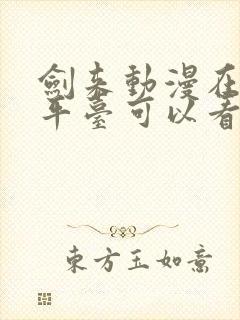 劍来動漫在
平臺可以看
東方玉如意